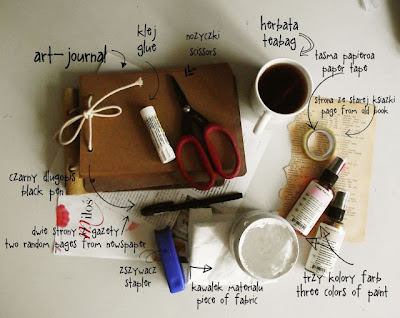 klej
glue
nożyczki
scissors
herbata
teabag
art-journal
taśma papieroa
paper tape
strona ze starej ksiazki
page from old book
czarny długopis
black pen
dwie strony z gazety
two random pages from newspaper
miłoś
zszywacz
stapler
kawałek materiału
piece of fabric
trzy kolory farb
three colors of paint